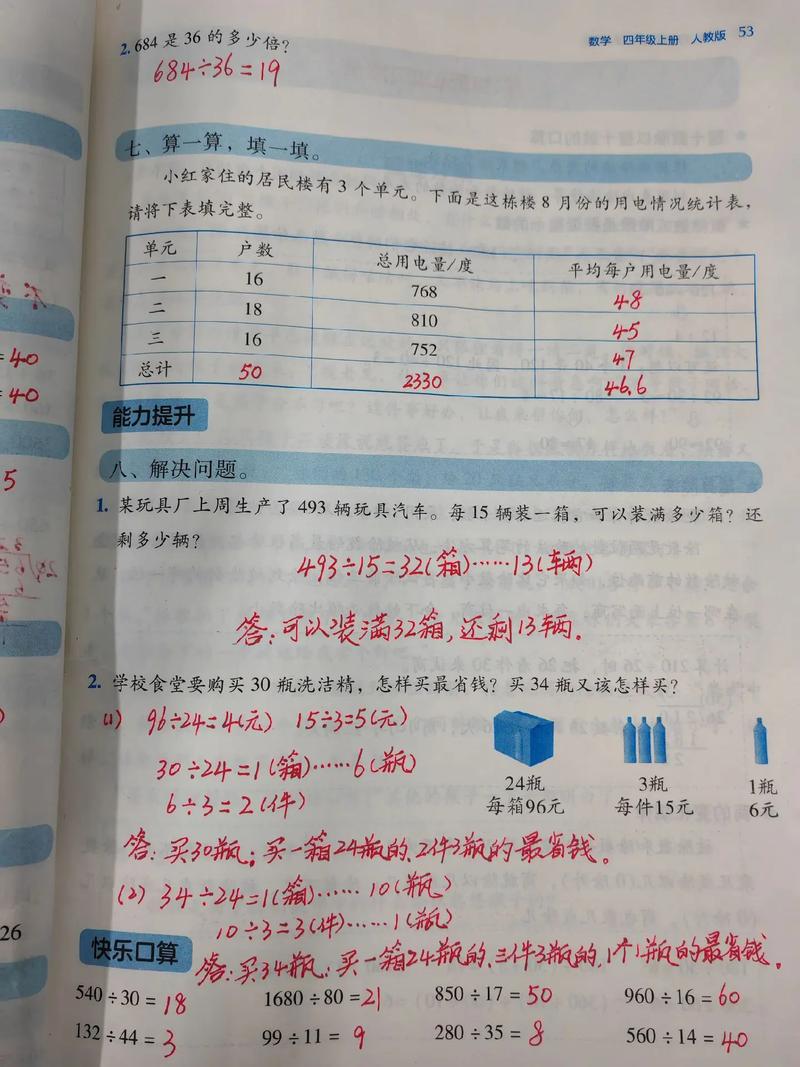 数学 四年级上册 人教版 53
2. 684 是 36 的多少倍？
684÷36=19
七、算一算，填一填。
小红家住的居民楼有 3 个单元。下面是这栋楼 8 月份的用电情况统计表，
请将下表填完整。
单元 户数 总用电量/度 平均每户用电量/度
一 16 768 48
二 18 810 45
三 16 752 47
总计 50 2330 46.6
能力提升
八、解决问题。
1. 某玩具厂上周生产了 493 辆玩具汽车。每 15 辆装一箱，可以装满多少箱？还
剩多少辆？
493÷15=32(箱)……13(车辆)
答：可以装满32箱，还剩13辆。
2. 学校食堂要购买 30 瓶洗洁精，怎样买最省钱？买 34 瓶又该怎样买？
(1) 96÷24=4(元) 15÷3=5(元)
30÷24=1(箱)……6(瓶)
6÷3=2(件)
24瓶 3瓶 1瓶
每箱96元 每件15元 6元
答：买30瓶；买一箱24瓶的、2件3瓶的最省钱。
(2) 34÷24=1(箱)……10(瓶)
10÷3=3(件)……1(瓶)
答：买34瓶：买一箱24瓶的、三件3瓶的、1个1瓶的最省钱。
快乐口算
540÷30=18 1680÷80=21 850÷17=50 960÷16=60
132÷44=3 99÷11=9 280÷35=8 560÷14=40
=40
=40
5
26